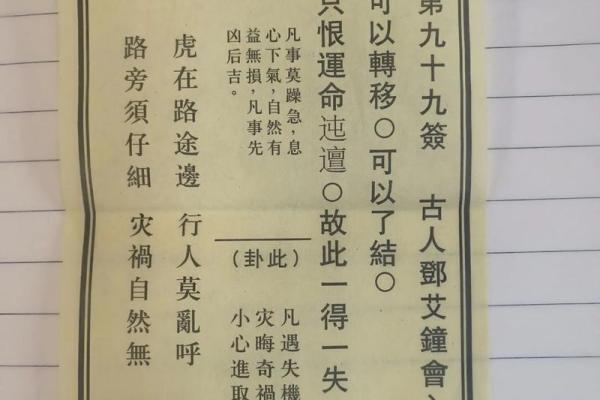 第九十九簽 古人鄧艾鐘會
可以轉移○可以了結○
只恨運命迍邅○故此一得一失
凡事莫躁急,息
心下氣,自然有
益無損,凡事先
凶后吉。
(此卦)
凡遇失機
灾晦奇禍
小心進取
虎在路途邊 行人莫亂呼
路旁須仔細 灾禍自然無